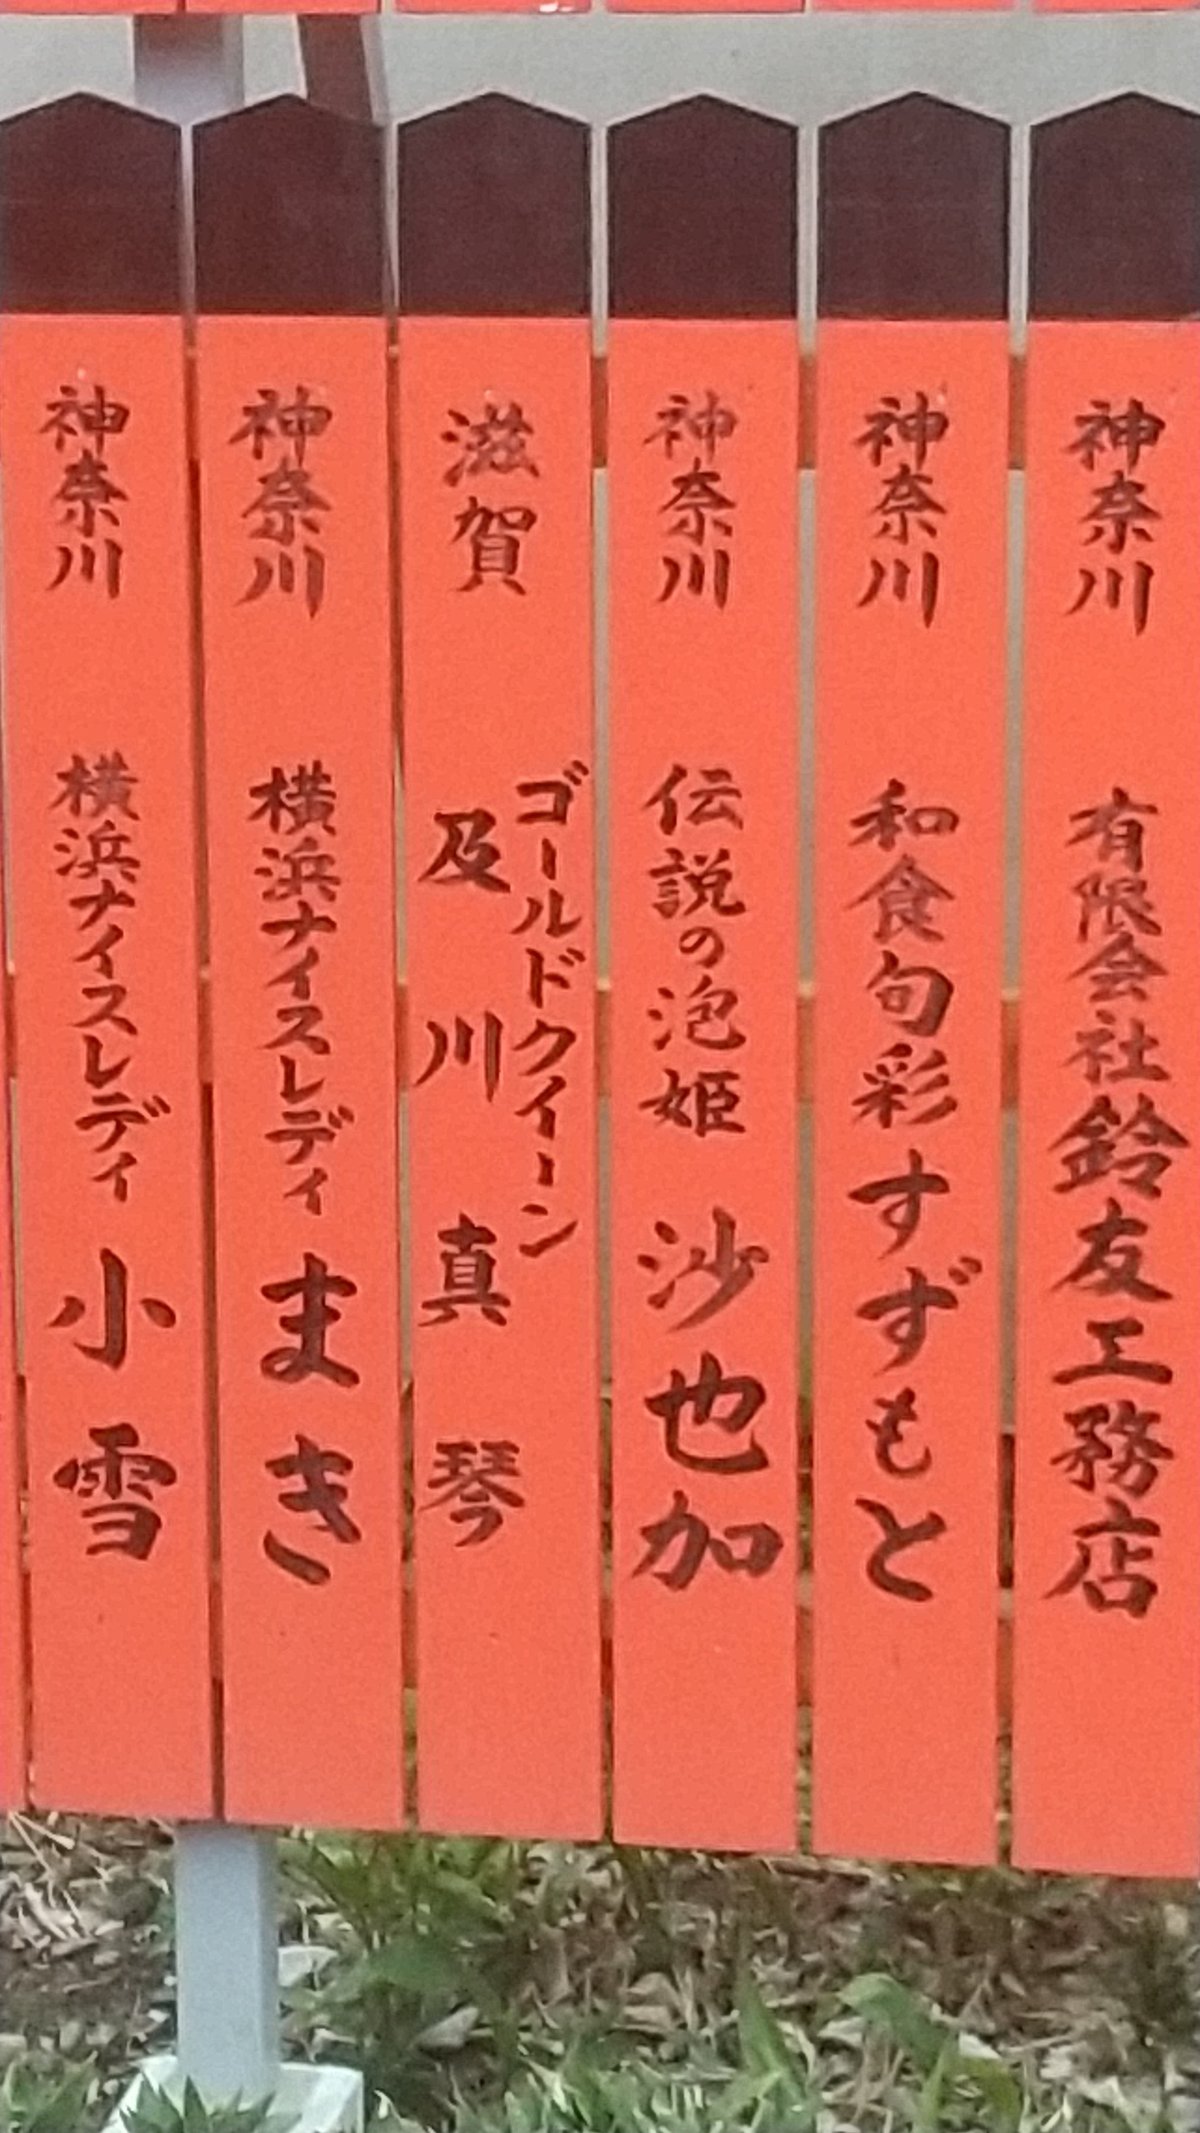 神奈川 有限会社鈴友工務店
神奈川 和食句彩すずもと
神奈川 伝説の泡姫 沙也加
滋賀 ゴールドクイーン
及川真琴
神奈川 横浜ナイスレディ まき
神奈川 横浜ナイスレディ 小雪